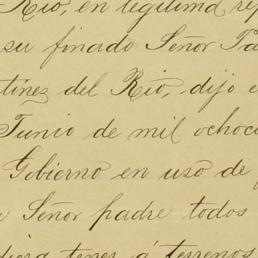 Rio, en legítima rep
su finado Señor Pa
tínez del Rio, dijo e
Junio de mil ochoc
Gobierno en uso de
Señor padre todos
tener á terrenos